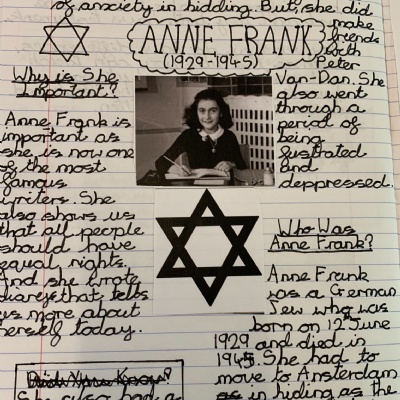 of anxiety in hidding. But, she did
make
friends
with
Peter
ANNE FRANK
(1929-1945)
Why is She
Important?
Anne Frank is
important as
she is now one
of the most
famous
writers. She
also shows us
that all people
should have
equal rights.
And she wrote
diareys that tells
us more about
herself today.
Did You Know?
She also had a
Van-Dan. She
also went
through a
period of
being
fustrated
and
deppressed.
Who Was
Anne Frank?
Anne Frank
was a German
Jew who was
born on 12 June
1929 and died in
1945. She had to
move to Amsterdam
in hiding as the